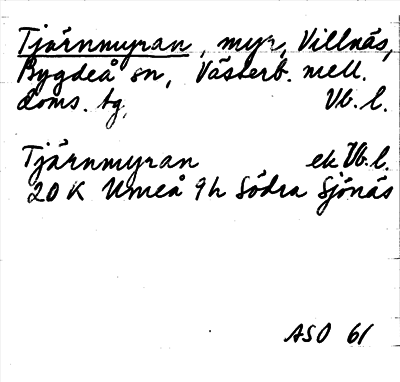 Tjärnmyran, myr, Villnäs,
Bygdeå sn, Västerb. mell.
doms. tg. Vb. l.
Tjärnmyran ek Vb. l.
20 K Umeå 9h Södra Sjönäs
ASO 61